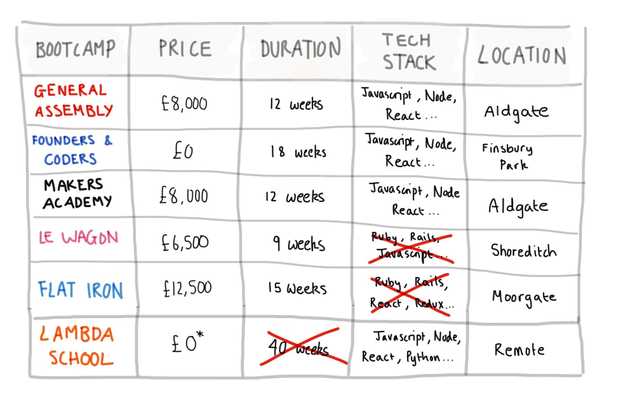 BOOTCAMP PRICE DURATION TECH STACK LOCATION
GENERAL ASSEMBLY £8,000 12 weeks Javascript, Node, React... Aldgate
FOUNDERS & CODERS £0 18 weeks Javascript, Node, React... Finsbury Park
MAKERS ACADEMY £8,000 12 weeks Javascript, Node React... Aldgate
LE WAGON £6,500 9 weeks Ruby, Rails, Javascript... Shoreditch
FLAT IRON £12,500 15 weeks Ruby, Rails, React, Redux... Moorgate
LAMBDA SCHOOL £0* 40 weeks Javascript, Node, React, Python... Remote